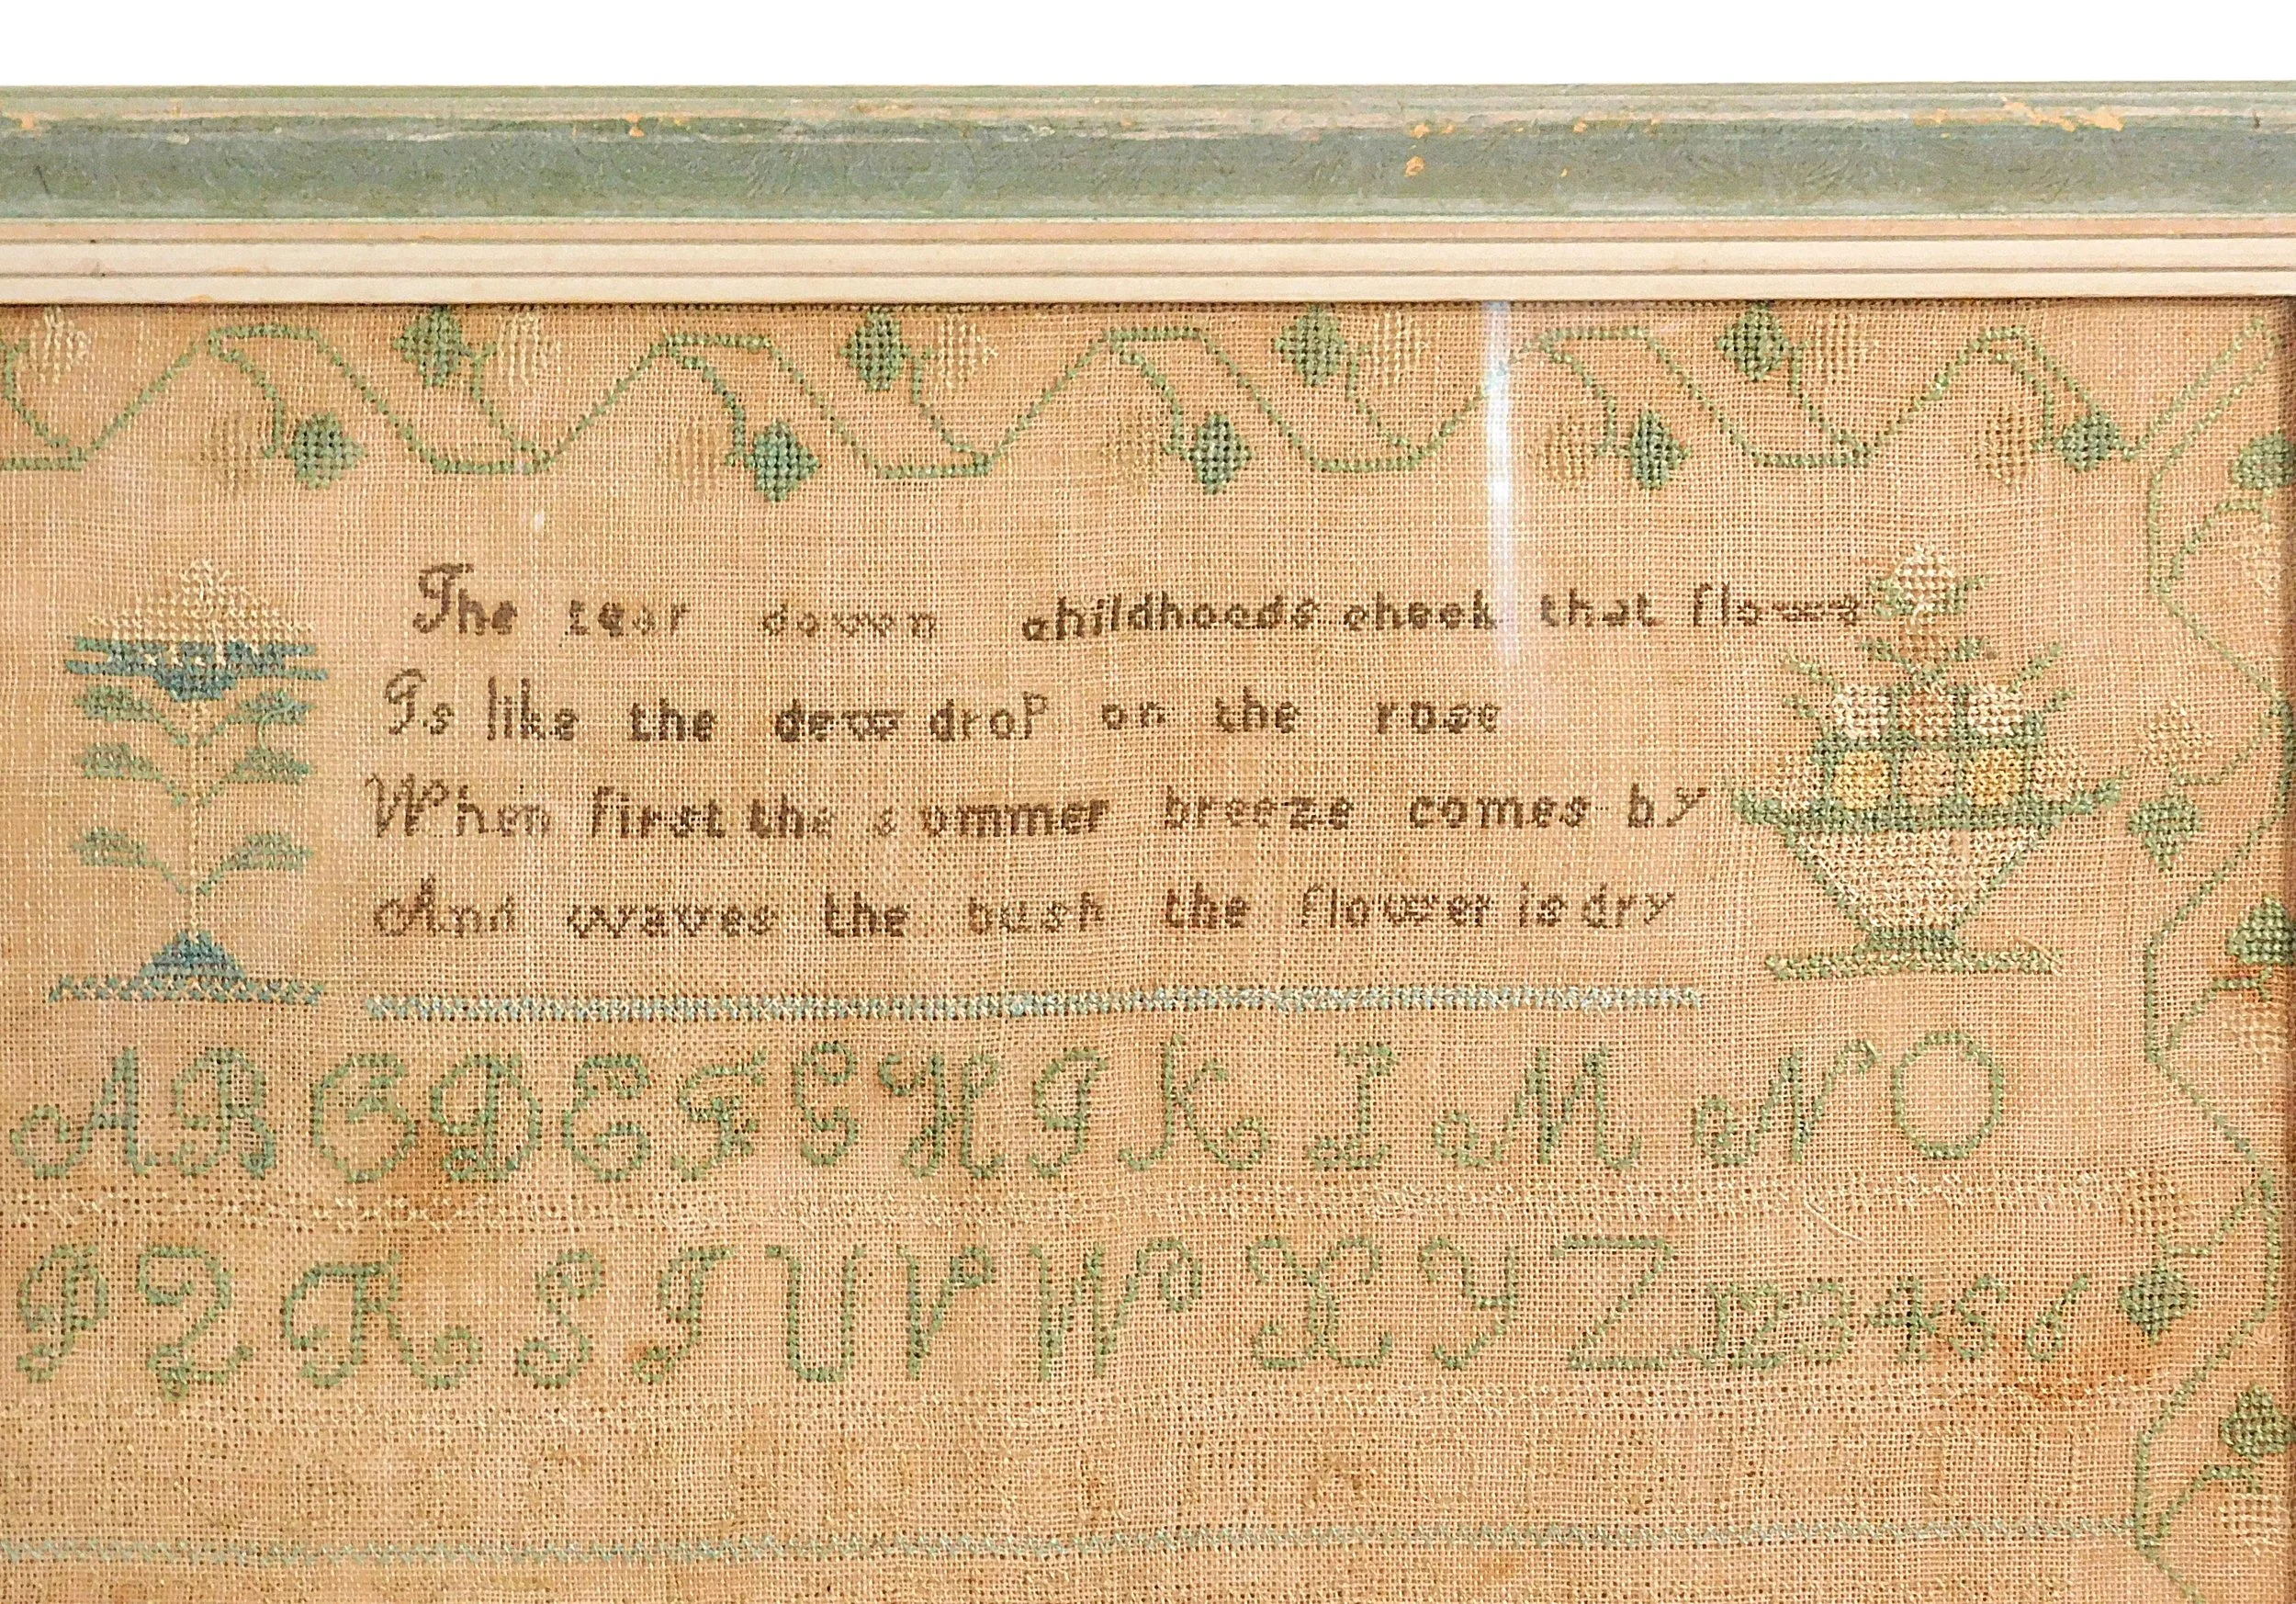 The tear down childhoods cheek that flows
Is like the dew drop on the rose
When first the summer breeze comes by
And waves the bush the flower is dry
A B C D E F G H I K L M N O
P Q R S T U V W X Y Z 1 2 3 4 5 6